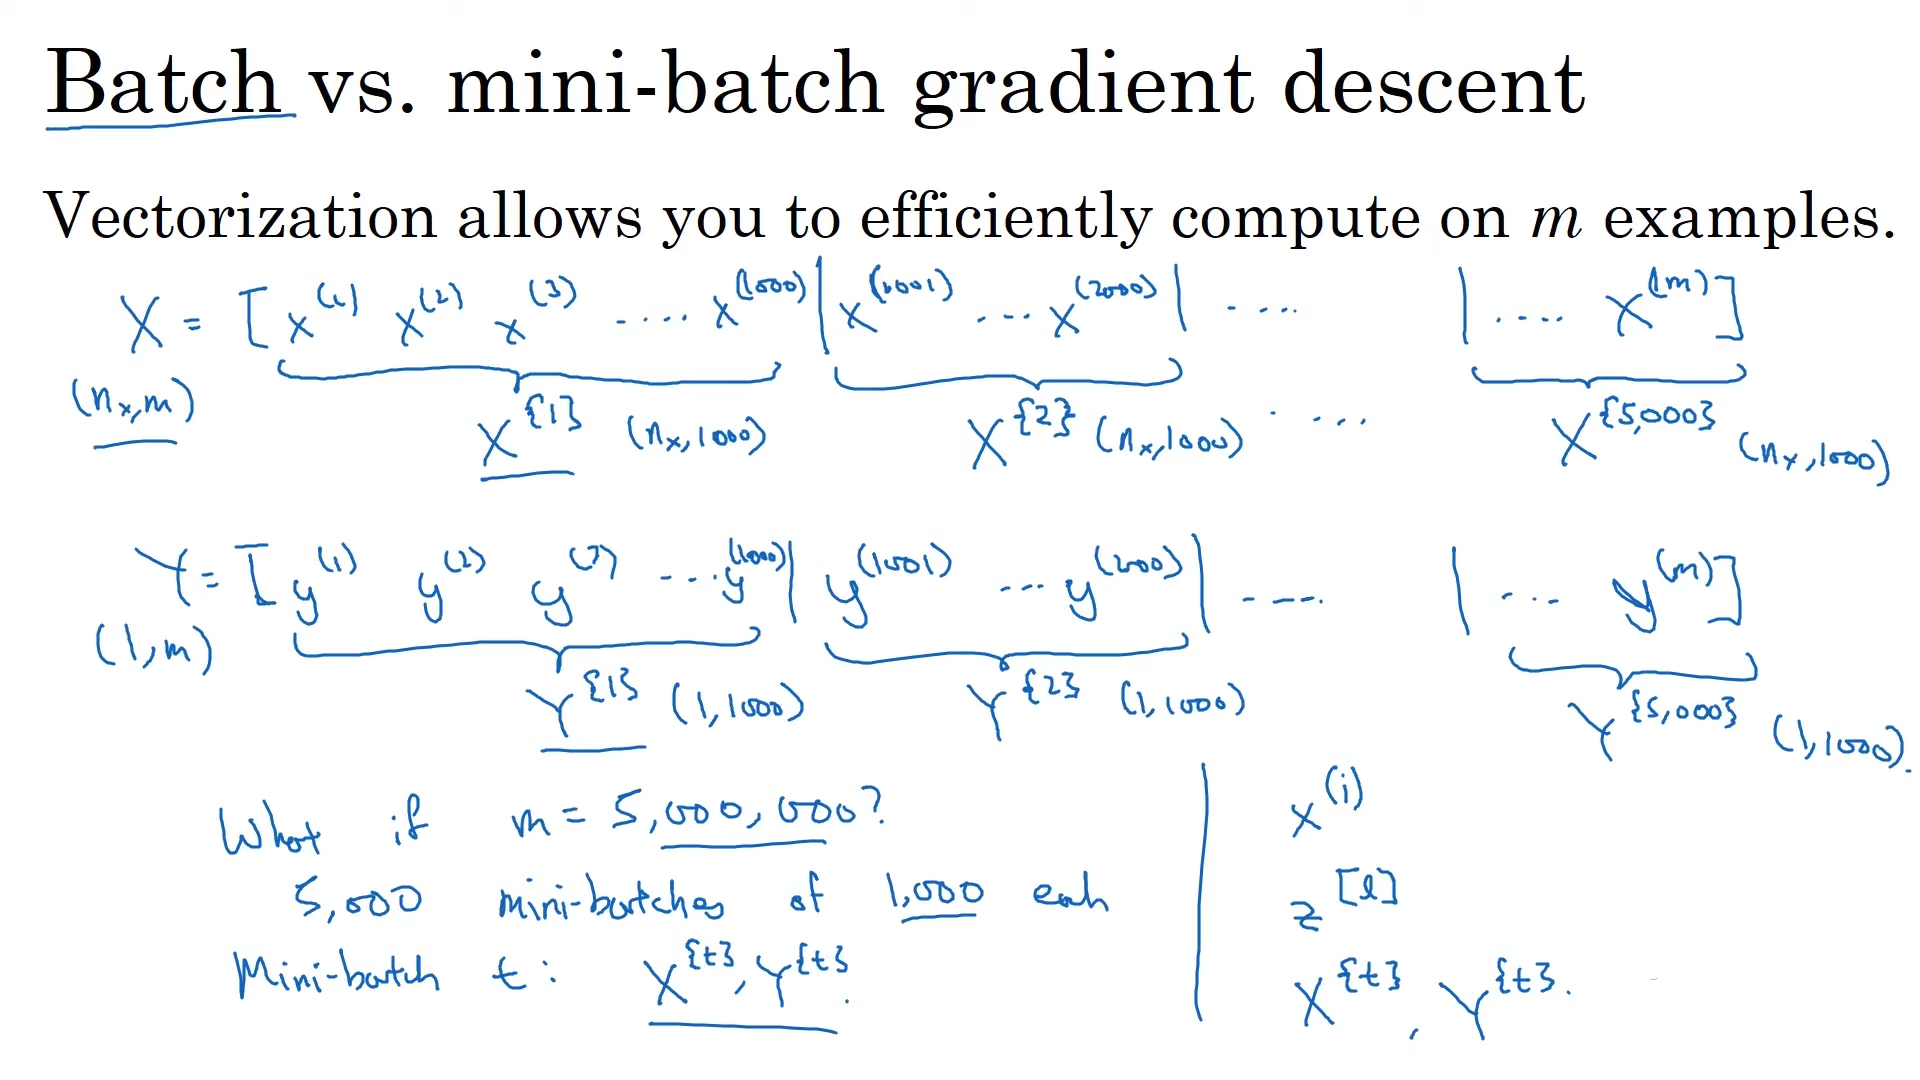 Batch vs. mini-batch gradient descent
Vectorization allows you to efficiently compute on m examples.
X = [x^(1) x^(2) x^(3) .... x^(1000) | x^(1001) ... x^(2000) | .... | .... x^(m)]
(n_x,m) X^{1} (n_x,1000) X^{2} (n_x,1000) .... X^{5,000} (n_x,1000)
Y = [y^(1) y^(2) y^(3) ... y^(1000) | y^(1001) ... y^(2000) | ---- | ... y^(m)]
(1,m) Y^{1} (1,1000) Y^{2} (1,1000) Y^{5,000} (1,1000).
What if m = 5,000,000?
5,000 mini-batches of 1,000 each
Mini-batch t: X^{t}, Y^{t}.
x^(i)
z^[l]
X^{t}, Y^{t}.